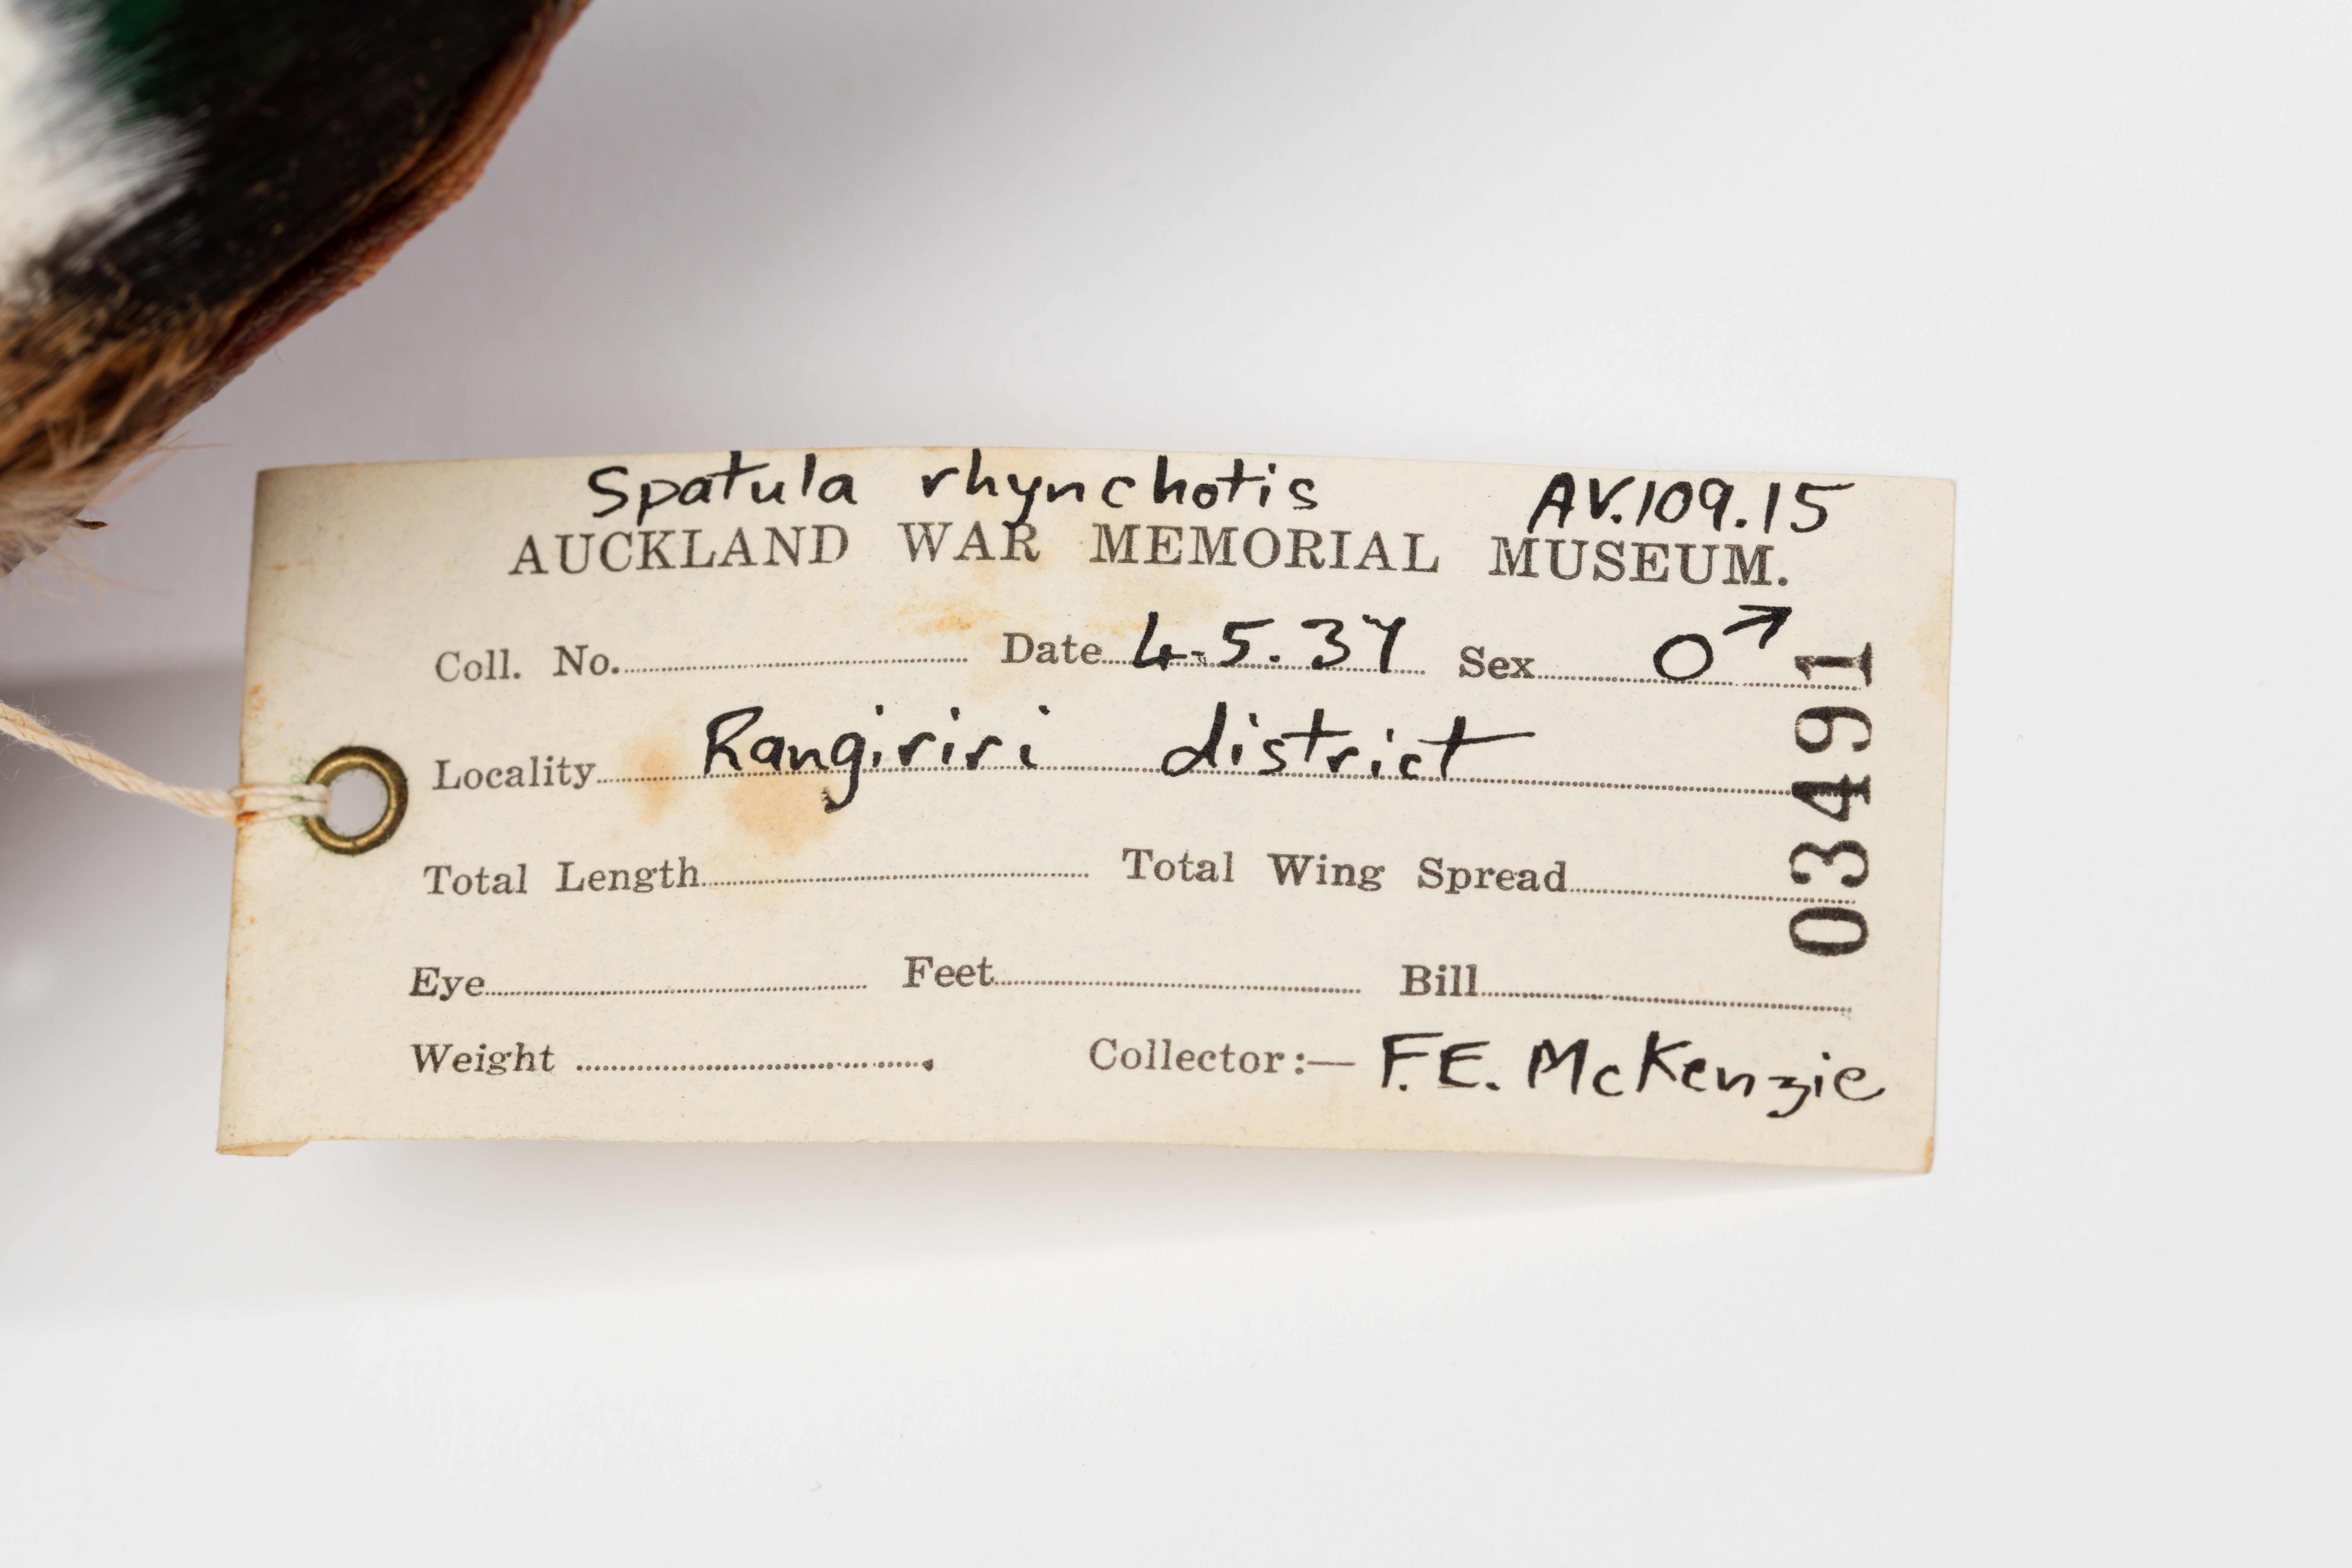 Spatula rhynchotis AV.109.15
AUCKLAND WAR MEMORIAL MUSEUM.
Coll. No. Date 4.5.37 Sex ♂
Locality Rangiriri district
Total Length Total Wing Spread
Eye Feet Bill
Weight Collector:— F.E. McKenzie
03491